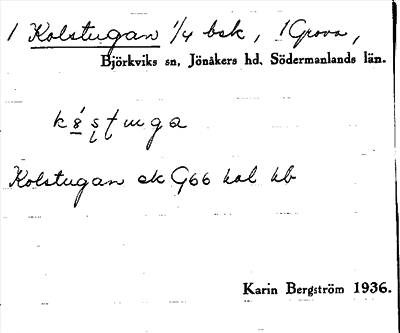 1 Kolstugan 1/4 bsk, 1 Grova,
Björkviks sn, Jönåkers hd, Södermanlands län.
Kolstugan ek G66 kol hb
Karin Bergström 1936.